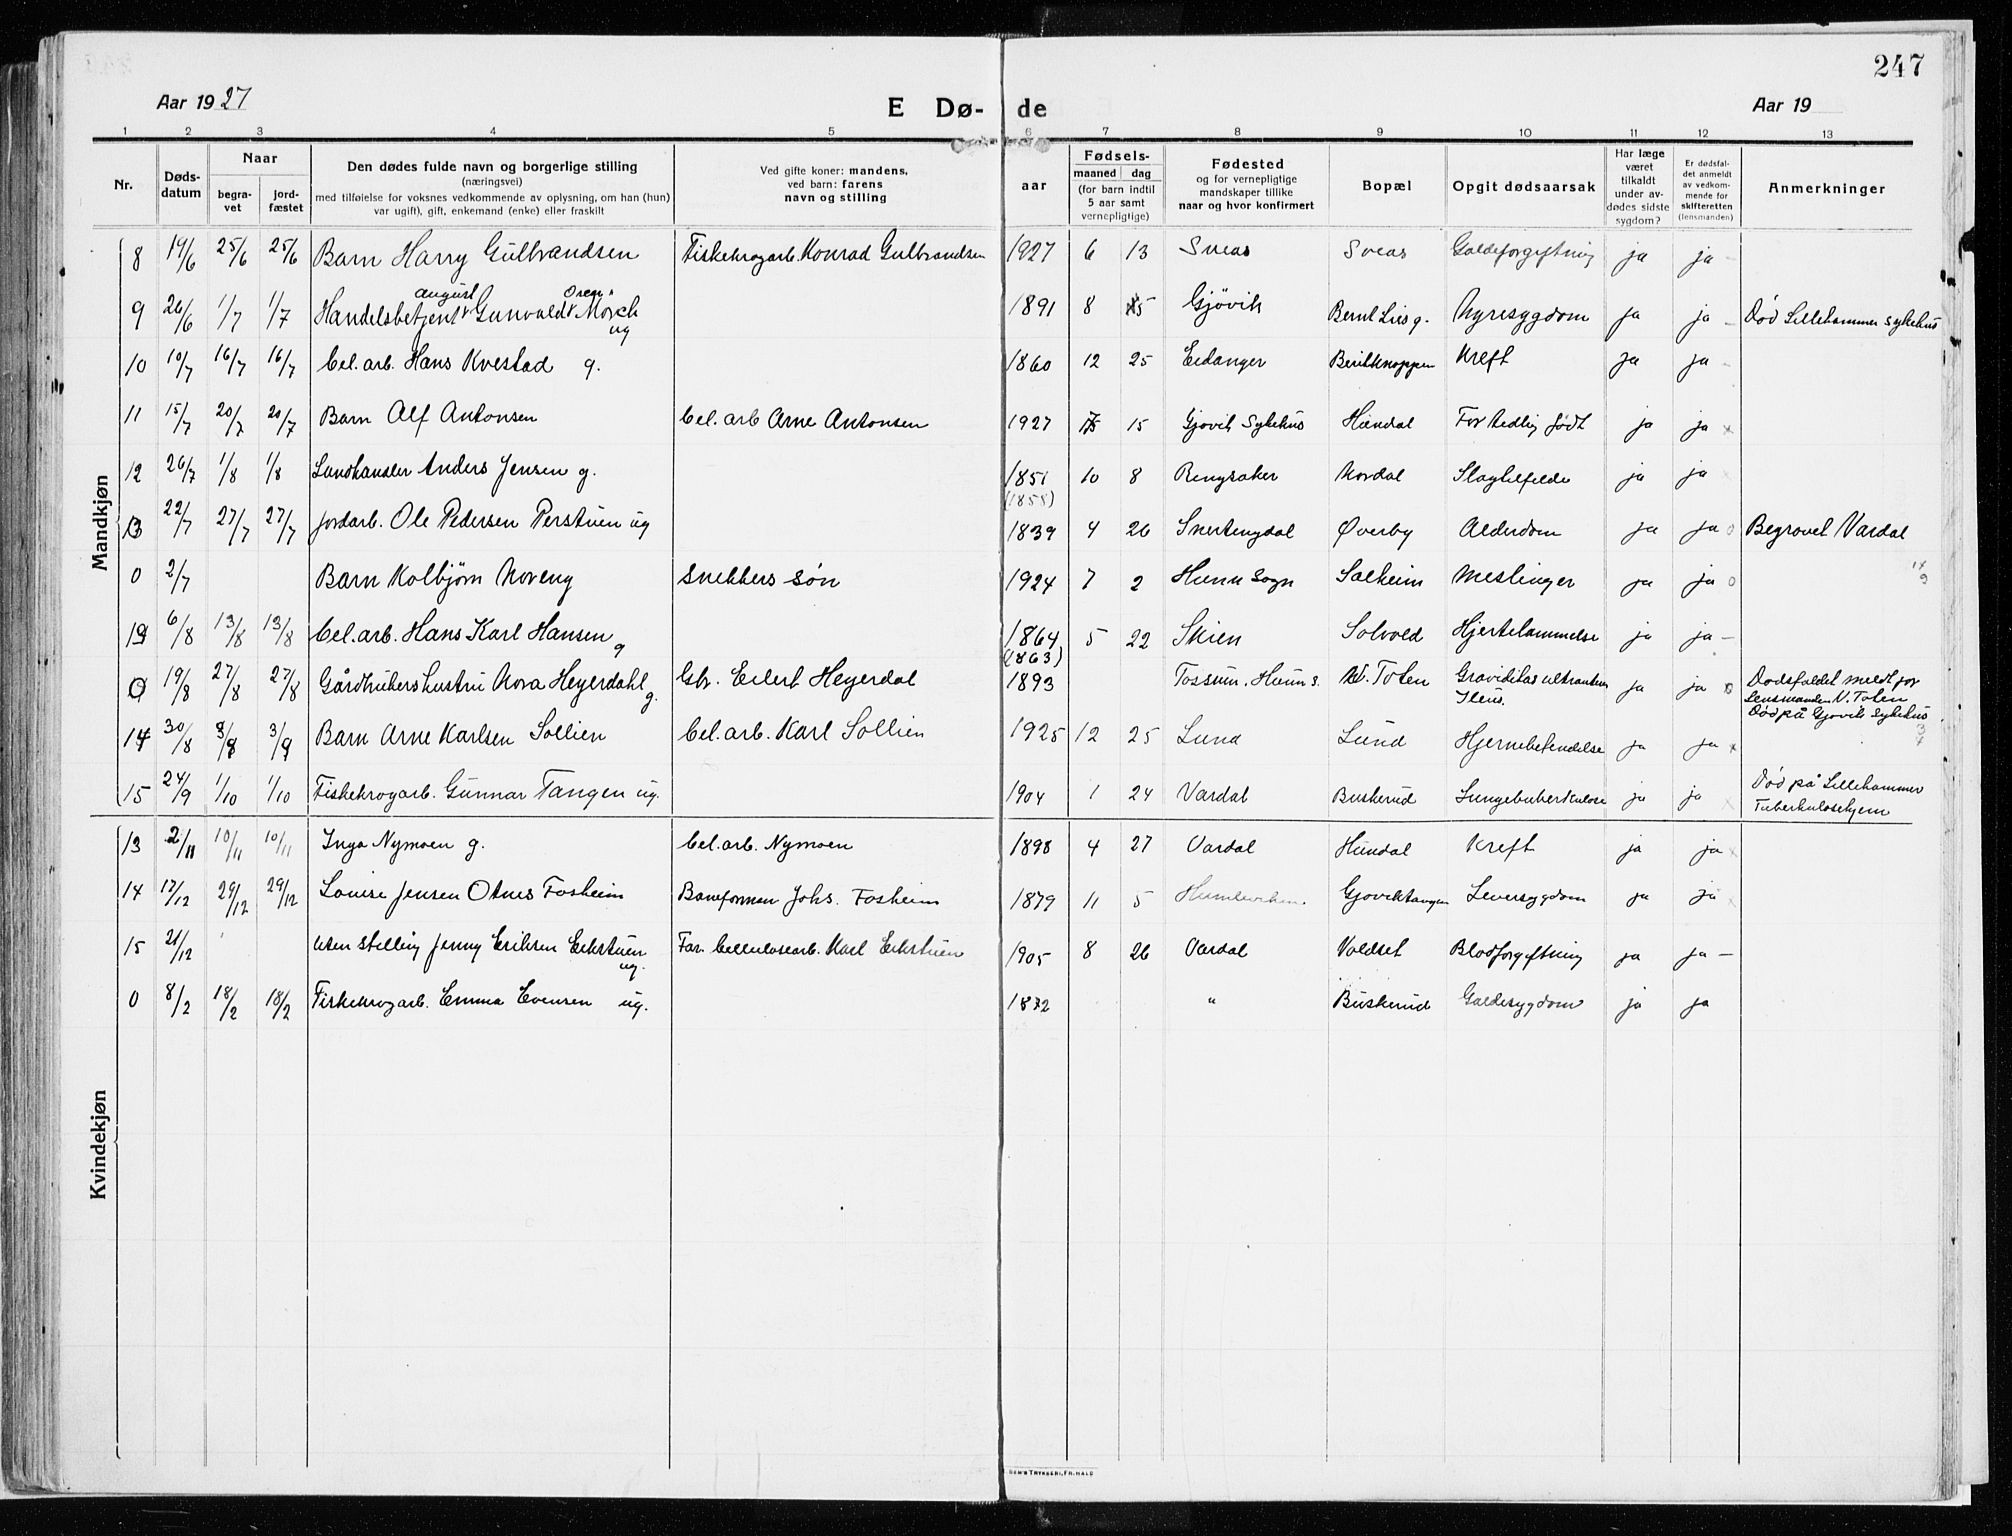 247
Aar 1927 E Dø- de Aar 19
1 2 3 4 5 6 7 8 9 10 11 12 13
Nr. Døds-datum Naar begra-vet jord-fæstet Den dødes fulde navn og borgerlige stilling (næringsvei) med tilføielse for voksnes vedkommende av oplysning, om han (hun) var ugift), gift, enkemand (enke) eller fraskilt Ved gifte koner: mandens, ved barn: farens navn og stilling aar Fødsels- maaned dag (for barn indtil 5 aar samt vernepligtige) Fødested og for vernepligtige mandskaper tillike naar og hvor konfirmert Bopæl Opgit dødsaarsak Har læge været tilkaldt under av-dødes sidste sygdom? Er dødsfal-det anmeldt av vedkom-mende for skifteretten (lensmanden) Anmerkninger
Mandkjøn
8 19/6 25/6 25/6 Barn Harry Gulbrandsen Fiskekrogarb. Konrad Gulbrandsen 1927 6 13 Sveas Sveas Galdeforgiftning ja ja –
august Oren
9 26/6 1/7 1/7 Handelsbetjent Gunvald Mørch ug 1891 8 15 Gjøvik Bernt Lies g. Nyresygdom ja ja – Død Lillehammer sykehus
10 10/7 16/7 16/7 Cel. arb. Hans Kvestad g. 1860 12 25 Eidanger Beritknappen Kreft ja ja –
11 15/7 20/7 20/7 Barn Alf Antonsen Cel. arb Arne Antonsen 1927 7 15 Gjøvik Sykehus Hundal For tidlig født ja ja x
12 26/7 1/8 1/8 Landhandler Anders Jensen g. 1851 10 8 Ringsaker Nordal Slagtilfelde ja ja
(1858)
13 22/7 27/7 27/7 Jordarb. Ole Pedersen Perstuen ug 1839 4 26 Snertingdal Øverby Alderdom ja ja o Begravet Vardal
0 2/7 Barn Kolbjørn Noreng snekkers søn 1924 7 2 Hunn Sogn Solheim Meslinger ja ja o
13 6/8 13/8 13/8 Cel. arb. Hans Karl Hansen g 1864 5 22 Skien Solvold Hjertelammelse ja ja –
(1863)
0 19/8 27/8 27/8 Gårdbrukers hustru Nora Heyerdahl g. Gbr. Eilert Heyerdal 1893 Tossum. Hunn s. W. Toten Graviditas extrauterin Ileus. ja ja Dødsfaldet meldt for Lensmanden V. Toten Død på Gjøvik Sykehus
14 30/8 3/9 3/9 Barn Arne Karlsen Sollien Cel. arb. Karl Sollien 1925 12 25 Lund Lund Hjernebetendelse ja ja x
15 24/9 1/10 1/10 Fiskekrogarb. Gunnar Tangen ug. 1904 1 24 Vardal Buskerud Lungetuberkulose ja ja Død på Lillehammer Tuberkulosehjem
Kvindekjøn
13 2/11 10/11 10/11 Inga Nymoen g. Cel. arb. Nymoen 1898 4 27 Vardal Hundal Kreft ja ja x
14 17/12 29/12 29/12 Louise Jensen Otnes Fosheim Baneformen Johs. Fosheim 1879 11 5 Gjøviktangen Leversygdom ja ja x
15 21/12 uten stelling Jenny Eriksen Eikstuen ug. Far Cellulosearb. Karl Eikstuen 1905 8 26 Vardal Voldset Blodforgiftning ja ja –
0 8/2 18/2 18/2 Fiskekrogarb. Emma Evensen ug. 1872 " Buskerud Galdesygdom ja ja
TRYKKERI, FR. HALD